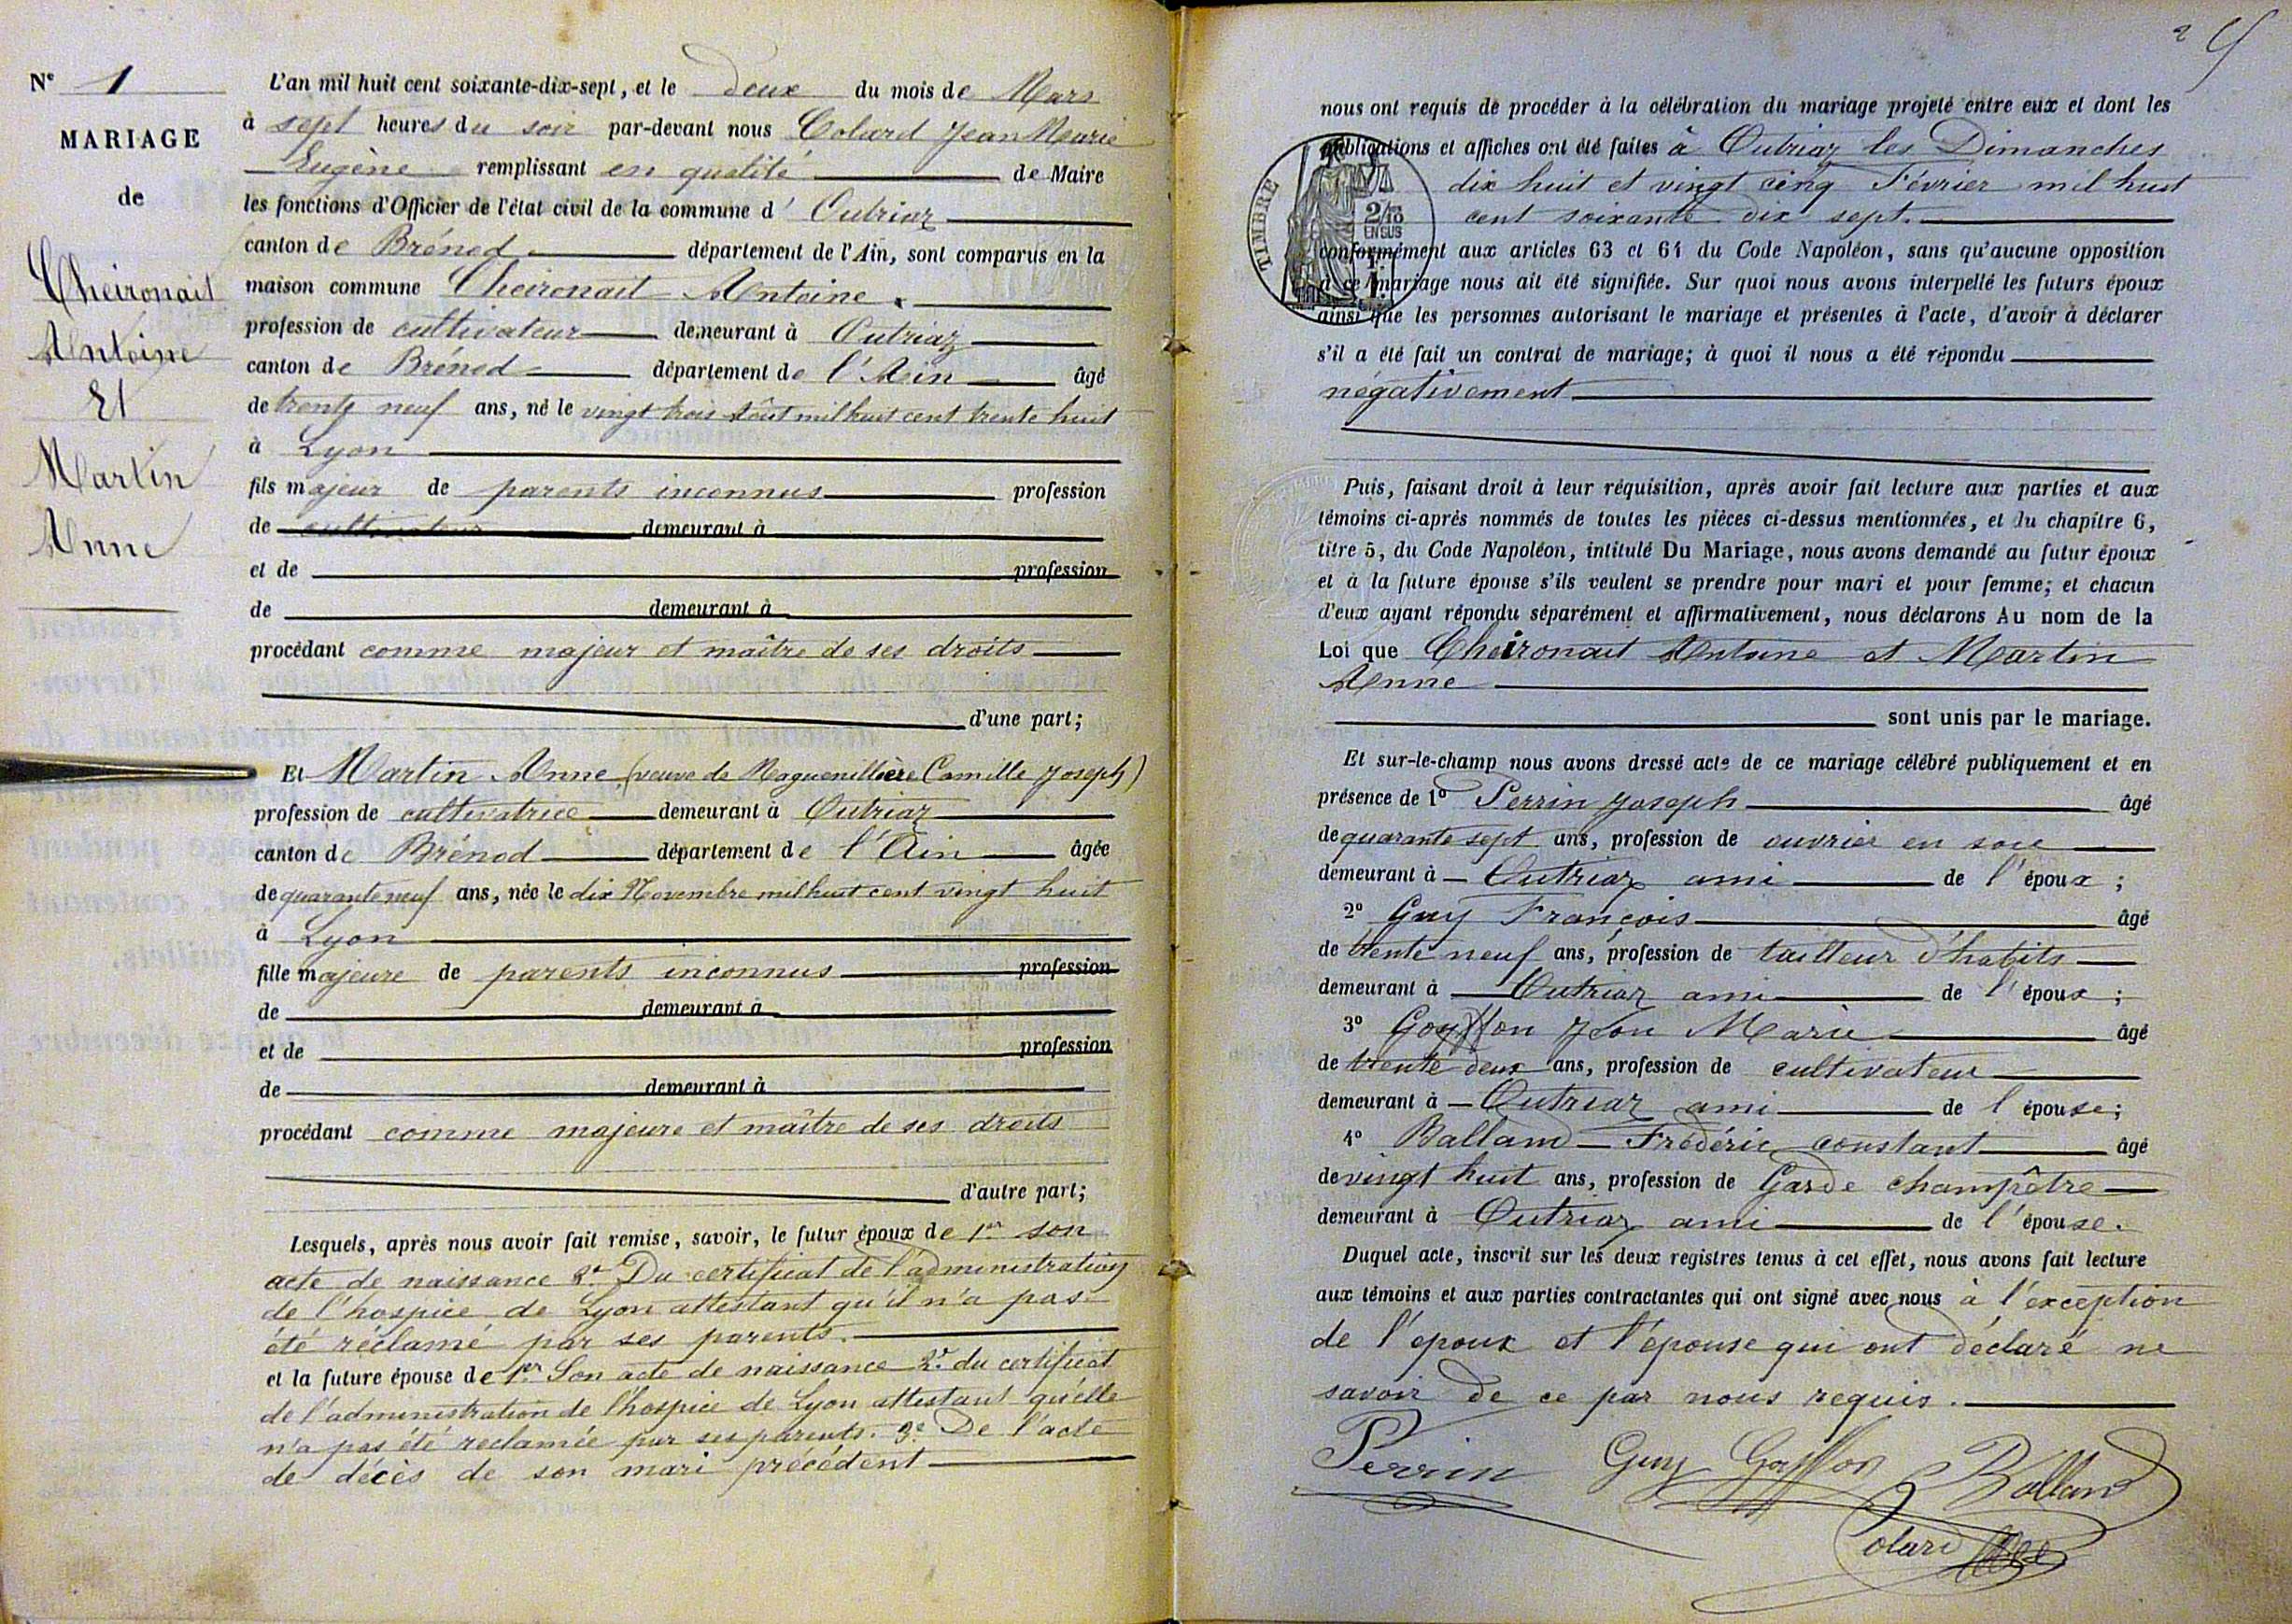 N° 1
MARIAGE
de
Cheironait
Antoine
Et
Martin
Anne
L'an mil huit cent soixante-dix-sept, et le deux du mois de Mars
à sept heures du soir par-devant nous Colard Jean Marie
Eugène remplissant en qualité de Maire
les fonctions d'Officier de l'état civil de la commune d'Outriaz
canton de Brénod département de l'Ain, sont comparus en la
maison commune Cheironait Antoine
profession de cultivateur demeurant à Outriaz
canton de Brénod département de l'Ain âgé
de trente neuf ans, né le vingt trois Août mil huit cent trente huit
à Lyon
fils majeur de parents inconnus profession
de cultivateur demeurant à
et de profession
de demeurant à
procédant comme majeur et maître de ses droits
d'une part;
Et Martin Anne (veuve de Maguenillière Camille Joseph)
profession de cultivatrice demeurant à Outriaz
canton de Brénod département de l'Ain âgée
de quarante neuf ans, née le dix Novembre mil huit cent vingt huit
à Lyon
fille majeure de parents inconnus profession
de demeurant à
et de profession
de demeurant à
procédant comme majeure et maître de ses droits
d'autre part;
Lesquels, après nous avoir fait remise, savoir, le futur époux de 1er son
acte de naissance 2e Du certificat de l'administration
de l'hospice de Lyon attestant qu'il n'a pas
été réclamé par ses parents.
et la future épouse de 1er Son acte de naissance 2e du certificat
de l'administration de l'hospice de Lyon attestant qu'elle
n'a pas été reclamée par ses parents. 3e De l'acte
de décès de son mari précédent
2
nous ont requis de procéder à la célébration du mariage projeté entre eux et dont les
publications et affiches ont été faites à Outriaz les Dimanches
dix huit et vingt cinq Février mil huit
cent soixante dix sept.
TIMBRE
2/10
EN SUS
conformément aux articles 63 et 64 du Code Napoléon, sans qu'aucune opposition
à ce mariage nous ait été signifiée. Sur quoi nous avons interpellé les futurs époux
ainsi que les personnes autorisant le mariage et présentes à l'acte, d'avoir à déclarer
s'il a été fait un contrat de mariage; à quoi il nous a été répondu
négativement
Puis, faisant droit à leur réquisition, après avoir fait lecture aux parties et aux
témoins ci-après nommés de toutes les pièces ci-dessus mentionnées, et du chapitre 6,
titre 5, du Code Napoléon, intitulé Du Mariage, nous avons demandé au futur époux
et à la future épouse s'ils veulent se prendre pour mari et pour femme; et chacun
d'eux ayant répondu séparément et affirmativement, nous déclarons Au nom de la
Loi que Cheironait Antoine et Martin
Anne
sont unis par le mariage.
Et sur-le-champ nous avons dressé acte de ce mariage célébré publiquement et en
présence de 1° Perrin Joseph âgé
de quarante sept ans, profession de ouvrier en soie
demeurant à Outriaz ami de l'époux ;
2° Guy François âgé
de trente neuf ans, profession de tailleur d'habits
demeurant à Outriaz ami de l'époux ;
3° Goyffon Jean Marie âgé
de trente deux ans, profession de cultivateur
demeurant à Outriaz ami de l'épouse;
4° Balland Frédéric constant âgé
de vingt huit ans, profession de Garde champêtre
demeurant à Outriaz ami de l'épouse.
Duquel acte, inscrit sur les deux registres tenus à cet effet, nous avons fait lecture
aux témoins et aux parties contractantes qui ont signé avec nous à l'exception
de l'époux et l'épouse qui ont déclaré ne
savoir de ce par nous requis.
Perrin Guy Goyffon Balland
Colard